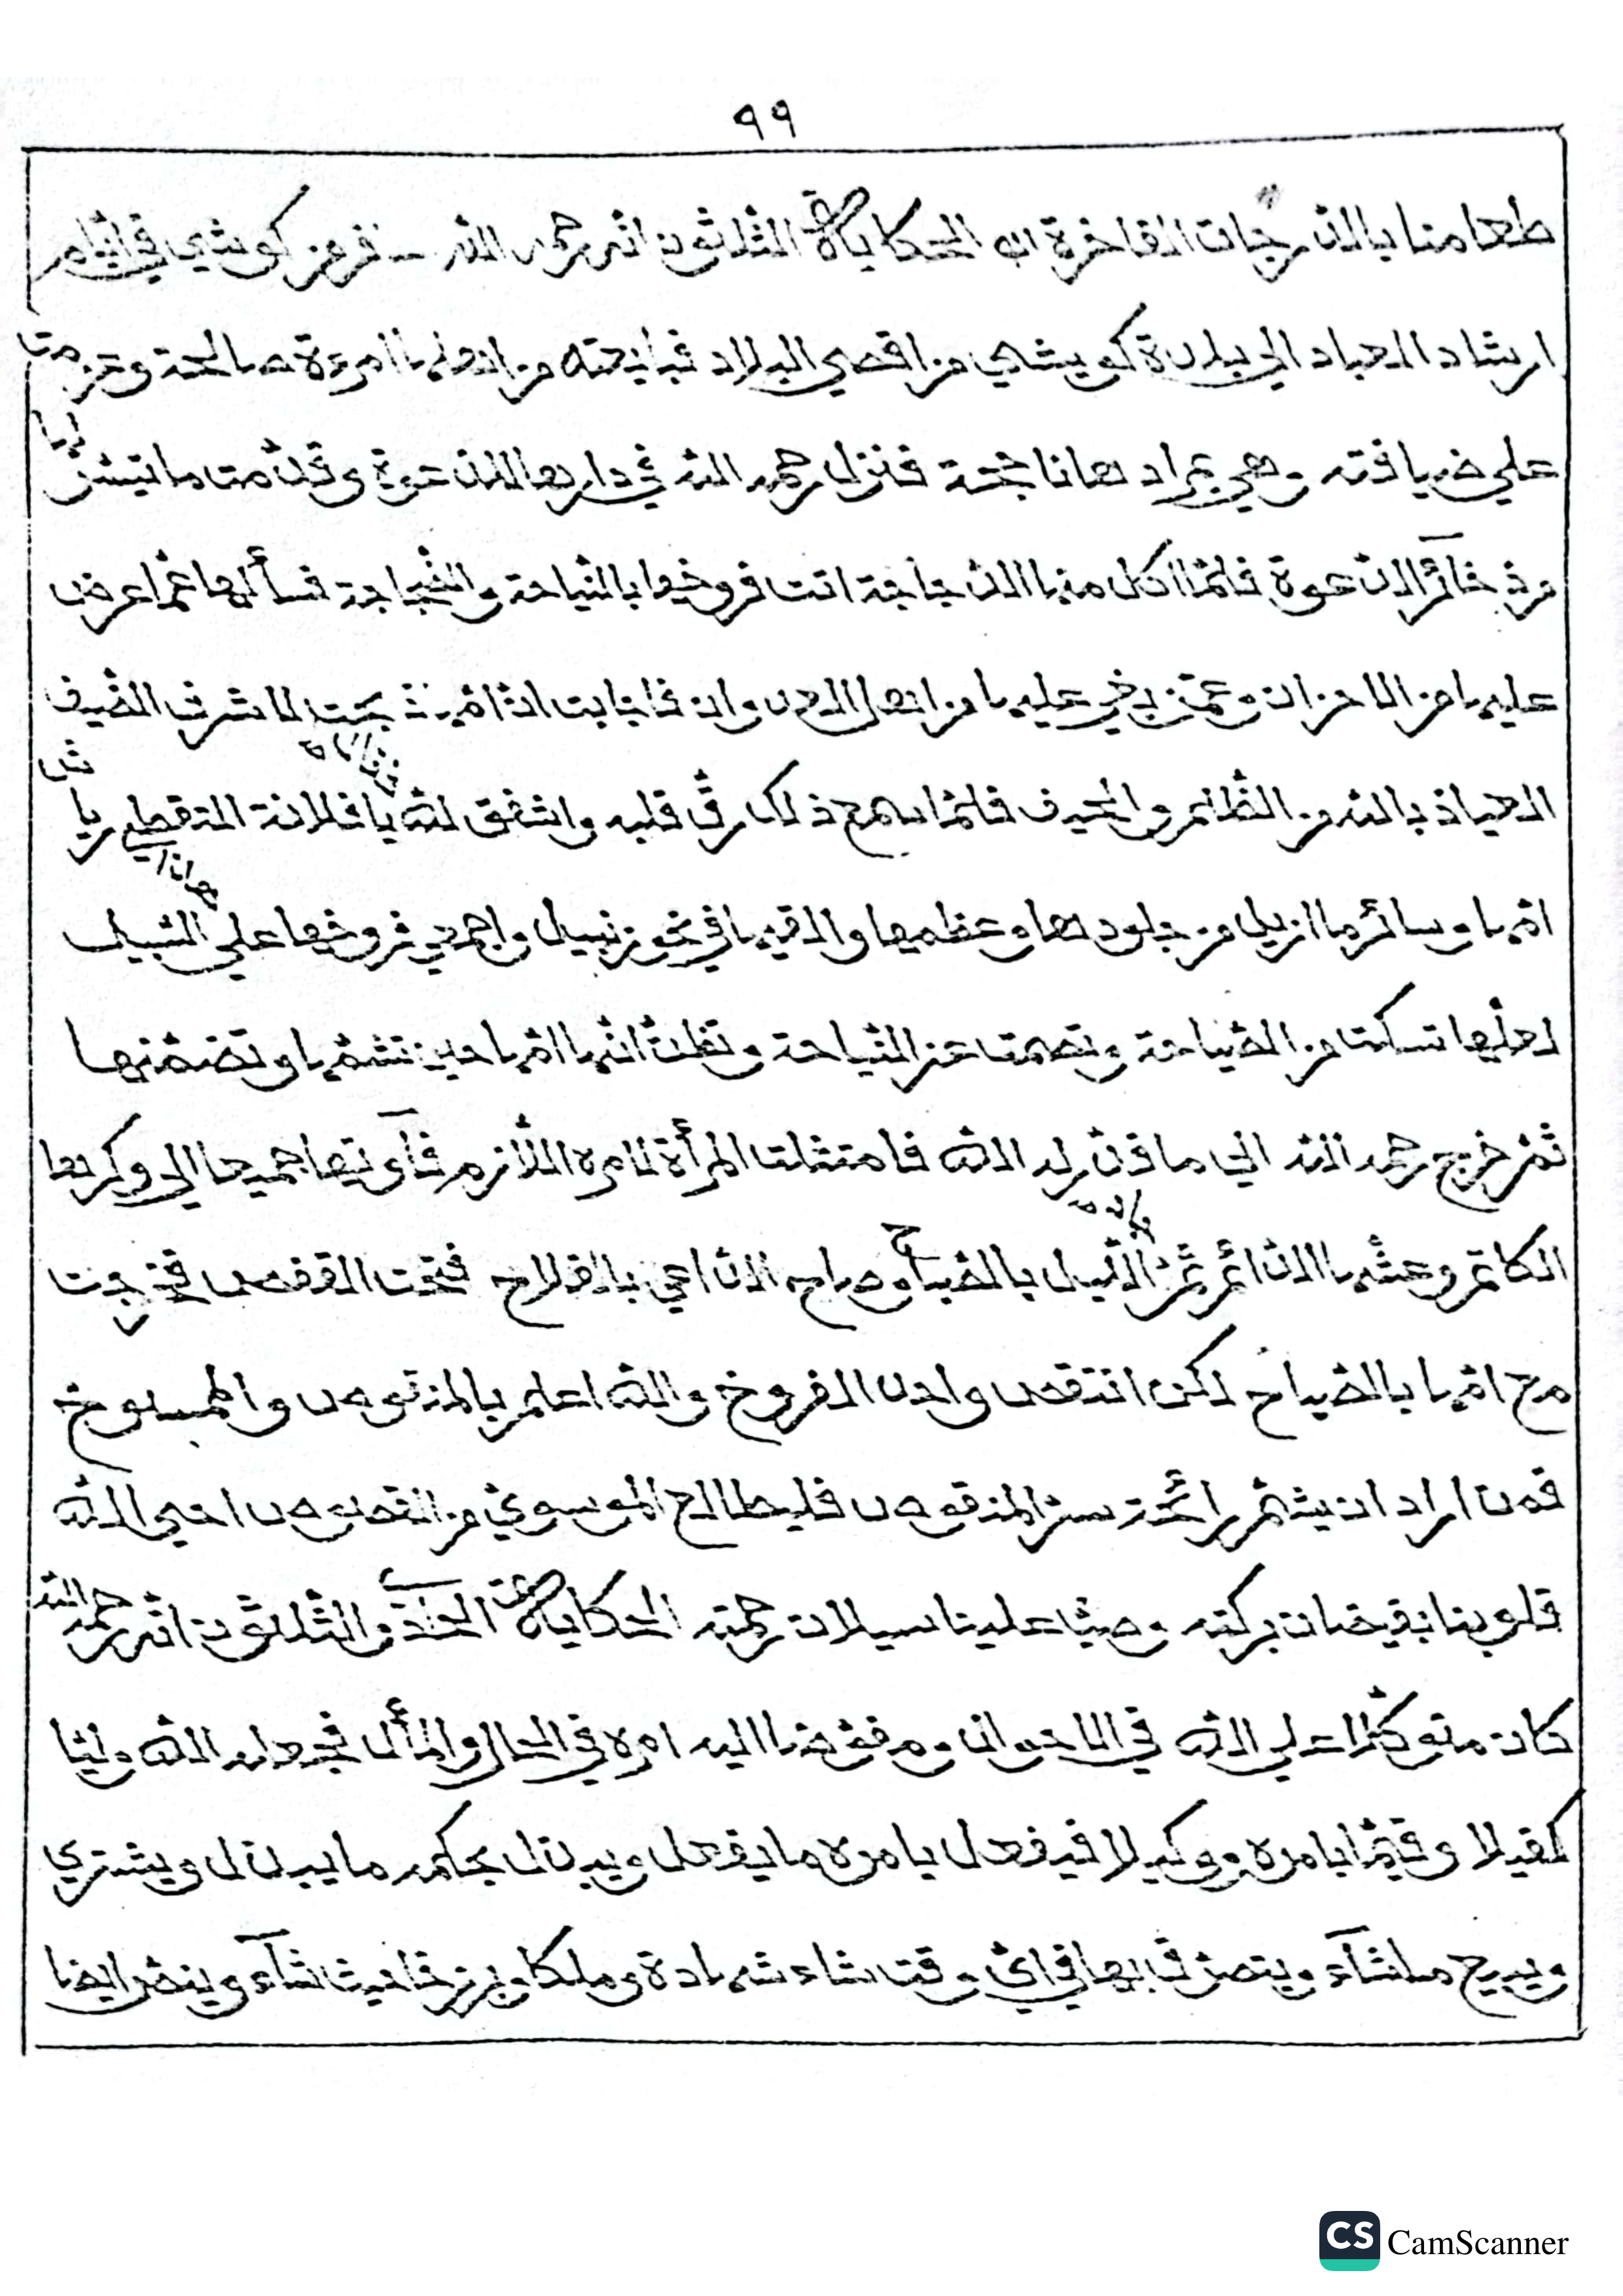 ٩٩
طعامنا بالدرجات الفاخرة الحكاية الثلاثون انه رحمه الله سافر من كويشي في ايام
ارشاد العباد الى بلدة كويشي من اقصى البلاد فبايعته من اهلها امرءة صالحة وعزمت
على ضيافته وهي بمرادها ناجحة فنزل رحمه الله في دارها للدعوة وقدمت ما تيسر لها
من ذخائر الدعوة فلما اكل منها الدجاجة اتت فروخها بالنياحة والضجاجة فسألها عما عرض
عليها من الاحزان وعمن بغي عليها من اهل العدوان فاجابت ان امها ذبحت لما شرف الضيف
العياذ بالله من الظلم والحيف فلما سمع ذلك رق قلبه واشفق لله يا فلانة التقطي ريش
امها وسائر ما ازيل من جلودها وعظمها والقيها في نحو زنبيل واجمعي فروخها على السبيل
لعلها تسكت من الصياحة وتصمت عن النياحة وتظن انها امها حين تشمها وتضمنها
ثم خرج رحمه الله الى ما قدر له الله فامتثلت المرأة لامره اللازم فآوتها جميعا الى وكرها
الكاتم وعشها الدائم ثم الليل بالصباح وصاح الداعي بالفلاح فتحت القفص فخرجت
مع امها بالصياح لكن انتقص واحد الفروخ والله اعلم بالمنقوص والممسوخ
فمن اراد ان يشم رائحة سر المنقوص فليطالع الموسوي من القصوص احيى الله
قلوبنا بفيضان بركته وصبا علينا سيلان رحمته الحكاية الحادية والثلاثون انه رحمه الله
كان متوكلا على الله في الاحوال ومفوضا اليه امره في الحال والمأل فجعله الله وليا
كفيلا وقيما بامره ووكيلا فيفعل بامره ما يفعل ويبدل بحكمه ما يبدل ويشتري
ويبيع ما شآء ويتصرف بها في اي وقت شاء شهادة وملكا وبرزخا حيث شآء وينضر ايضا
CS CamScanner